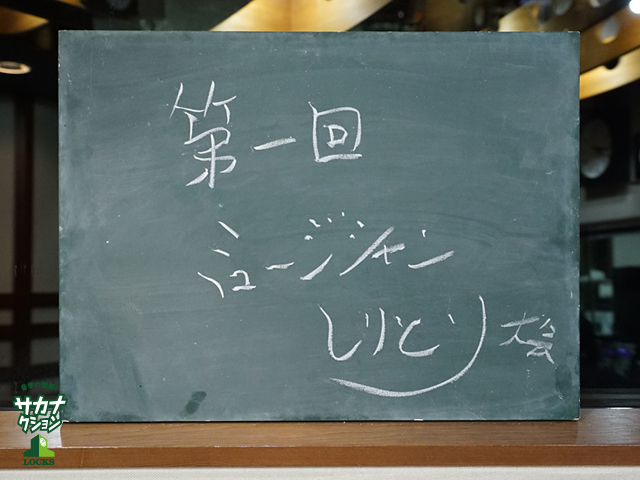 第一回
ミュージシャン
しりとり大会
サカナ
クション
LOCKS